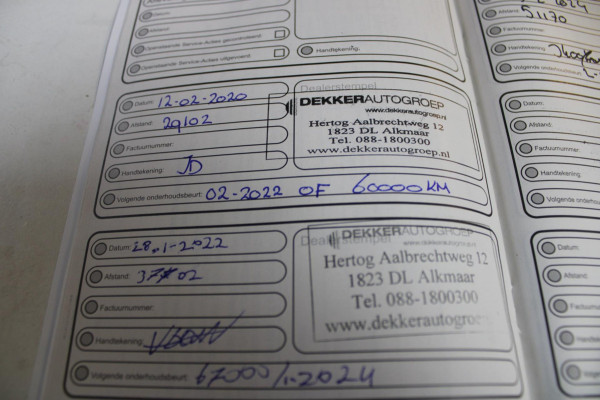 Datum:
Afstand:
Factuurnummer:
Openstaande Service-Acties gecontroleerd:
Openstaande Service-Acties uitgevoerd:
Handtekening:
Datum: 12-02-2020
Afstand: 29102
Factuurnummer:
Handtekening: JD
Volgende onderhoudsbeurt: 02-2022 OF 60000KM
Dealerstempel
DEKKERAUTOGROEP
www.dekkerautogroep.nl
Hertog Aalbrechtweg 12
1823 DL Alkmaar
Tel. 088-1800300
www.dekkerautogroep.nl
Datum: 28.1-2022
Afstand: 37702
Factuurnummer:
Handtekening:
Volgende onderhoudsbeurt: 67000/1-2024
Dealerstempel
DEKKERAUTOGROEP
www.dekkerautogroep.nl
Hertog Aalbrechtweg 12
1823 DL Alkmaar
Tel. 088-1800300
www.dekkerautogroe
Afstand:
51170
Factuurnummer:
Handtekening
Volgende onderhoudsbeur
Datum:
Afstand:
Factuurnummer:
Handtekening
Volgende onderhou
Datum:
Afstand:
Factuurnummer:
Handtekening
Volgende onde